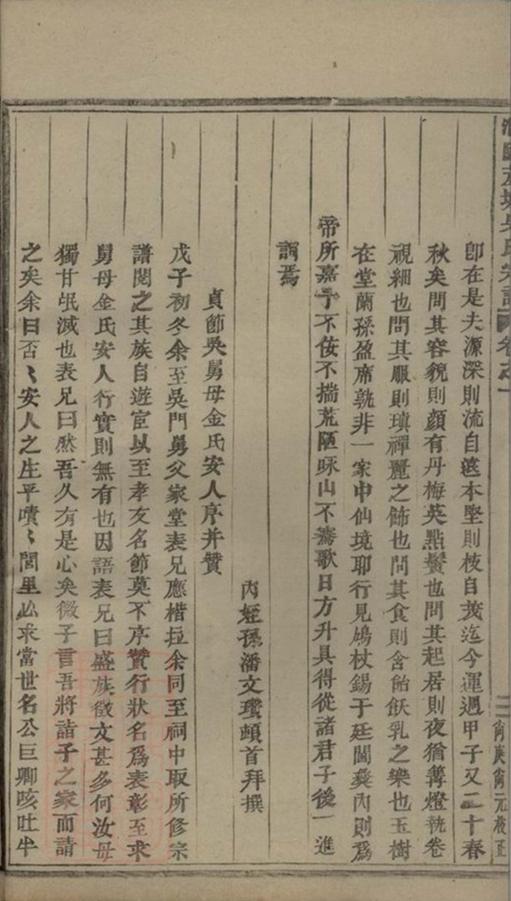 卽在是夫源深則流自遠本堅則枝自茂迄今運遇甲子又二十春
秋矣問其容貌則顏有丹梅英點鬢也問其起居則夜猶篝燈執卷
視細也問其服則瑱禪麗之飾也問其食則含飴飫乳之樂也玉樹
在堂蘭孫盈席孰非一家中仙境耶行見鳩杖錫于廷閫彜內則爲
帝所嘉予不佞不揣荒陋咏山不騫歌日方升具得從諸君子後一進
詞焉
貞節吳舅母金氏安人序并贊
內姪孫潘文瓚頓首拜撰
戊子初冬余至吳門舅父家堂表兄應楷拉余同至祠中取所修宗
譜閱之其族自遊宦以至孝友名節莫不序贊行狀名爲表彰至求
舅母金氏安人行實則無有也因語表兄曰盛族徵文甚多何汝母
獨甘泯滅也表兄曰然吾久有是心矣微子言吾將詣子之家而請
之矣余曰否〻安人之生平嘖〻閭里必求當世名公巨卿咳吐半